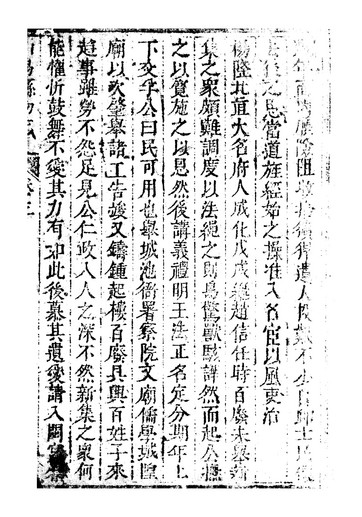 之思當道旌經始之操准入名宦以風吏治
楊陞北直大名府人成化戊戌繼趙信任時百廢未舉新
集之衆頗難調度以法繩之則鳥驚獸駭譁然而起公撫
之以寬施之以恩然後講義禮明王法正名定分期年上
下交孚公曰民可用也與城池衙署察院文廟儒學城隍
廟以次營舉諸工告竣又鑄鍾起樓百廢具興百姓子來
趨事雖勞不怨足見公仁政入人之深不然新集之衆何
能懽忻鼓舞不愛其力有如此後慕其遺愛請入
陽縣初志 卷三